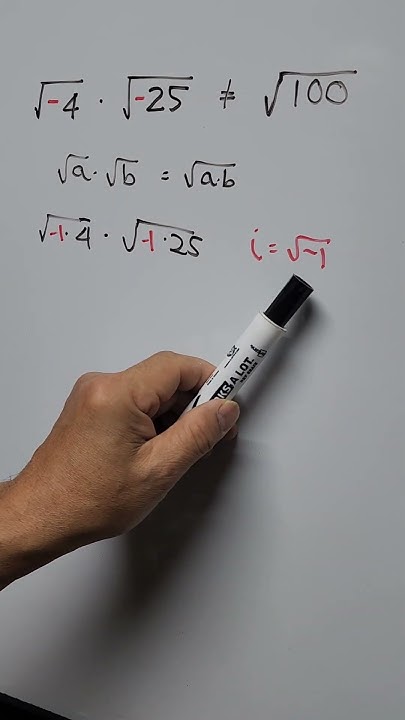 √-4 · √-25 ≠ √100
√a · √b = √a·b
√-1·4 · √-1·25 i = √-1
KS A LOT.